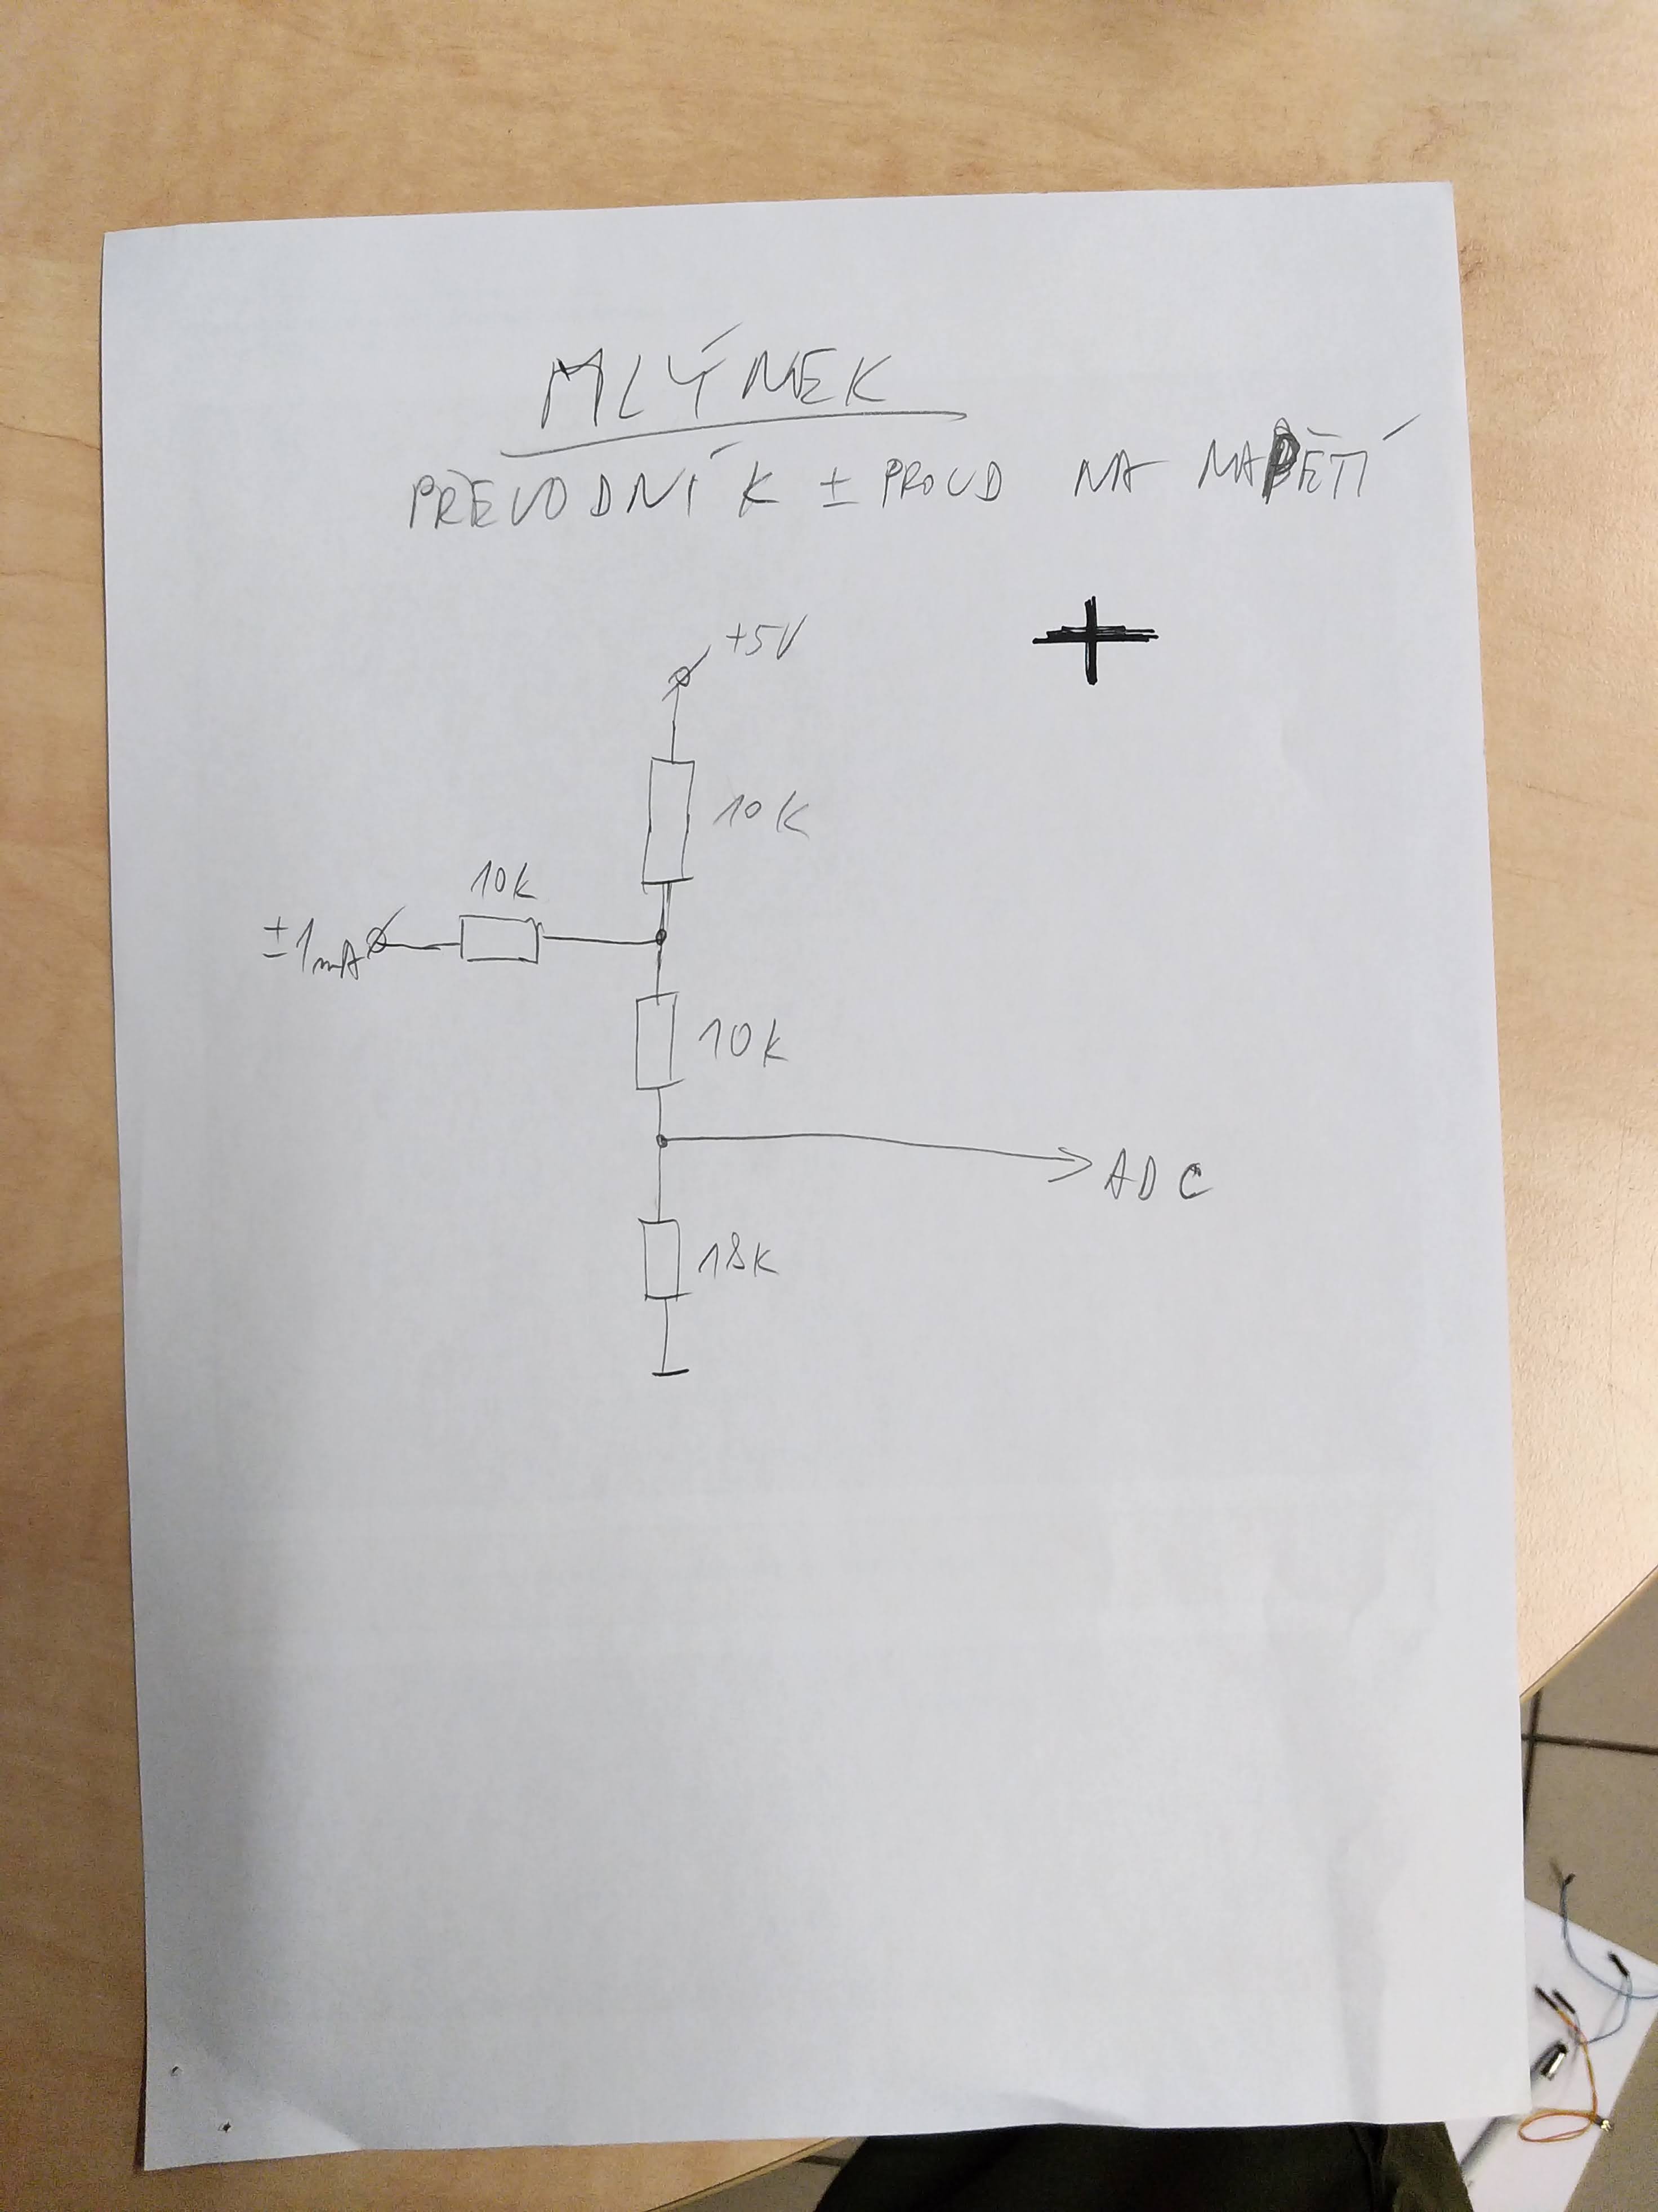 MLÝNEK
PŘEVODNÍK ± PROUD NA NAPĚTÍ
+
+5V
10K
10k
±1mA
10k
ADC
18K